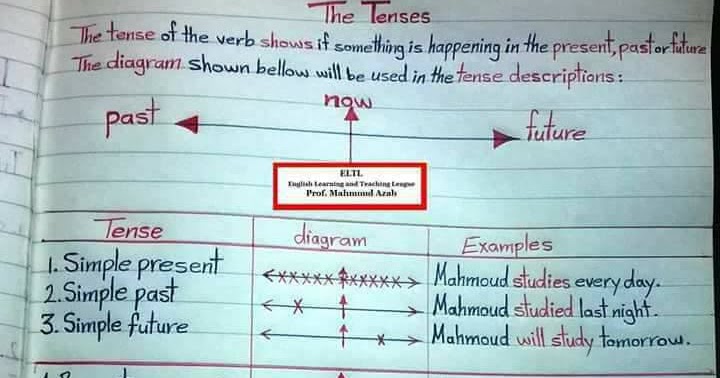 The Tenses
The tense of the verb shows if something is happening in the present, past or future
The diagram shown bellow will be used in the tense descriptions:
now
past
future
ELTL
English Learning and Teaching League
Prof. Mahmoud Azab
Tense diagram Examples
1. Simple present Mahmoud studies every day.
2. Simple past Mahmoud studied last night.
3. Simple future Mahmoud will study tomorrow.